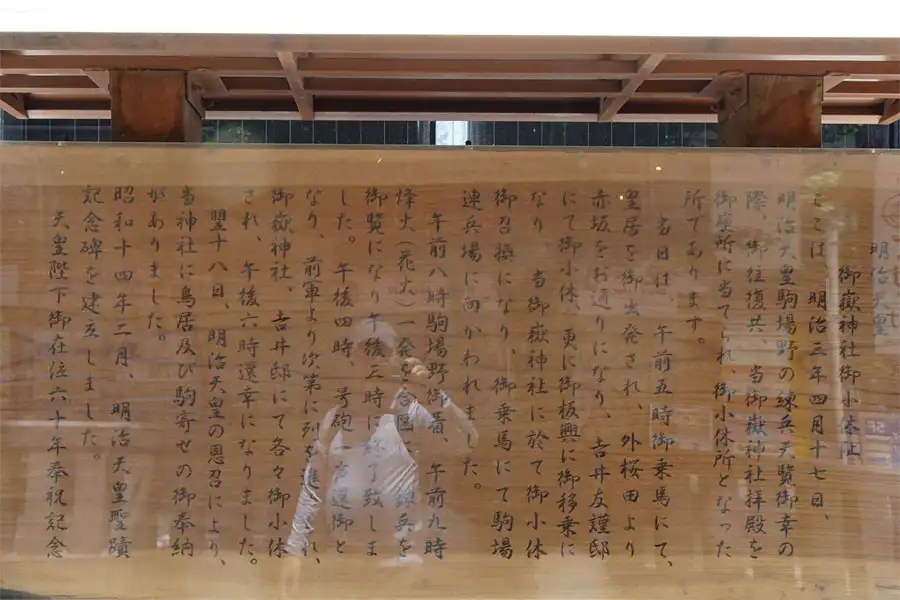 明治天皇
御嶽神社御小休阯
ここは、明治三年四月十七日、
明治天皇駒場野の練兵天覧御幸の
際、御往復共、当御嶽神社拝殿を
御座所に当てられ、御小休所となった
所であります。
当日は、午前五時御乗馬にて、
皇居を御出発され、外桜田より
赤坂をお通りになり、吉井友謹邸
にて御小休、更に御板輿に御移乗に
なり、当御嶽神社に於て御小休
御召換になり、御乗馬にて駒場
連兵場に向かわれました。
午前八時駒場野御着、午前九時
烽火(花火)一発を合図に練兵を
御覧になり午後三時に終了致しま
した。午後四時、号砲一声還御と
なり、前軍より次第に列を進られ、
御嶽神社、吉井邸にて各々御小休
され、午後六時還幸になりました。
翌十八日、明治天皇の恩召により、
当神社に鳥居及び駒寄せの御奉納
がありました。
昭和十四年二月、明治天皇聖蹟
記念碑を建立しました。
天皇陛下御在位六十年奉祝記念